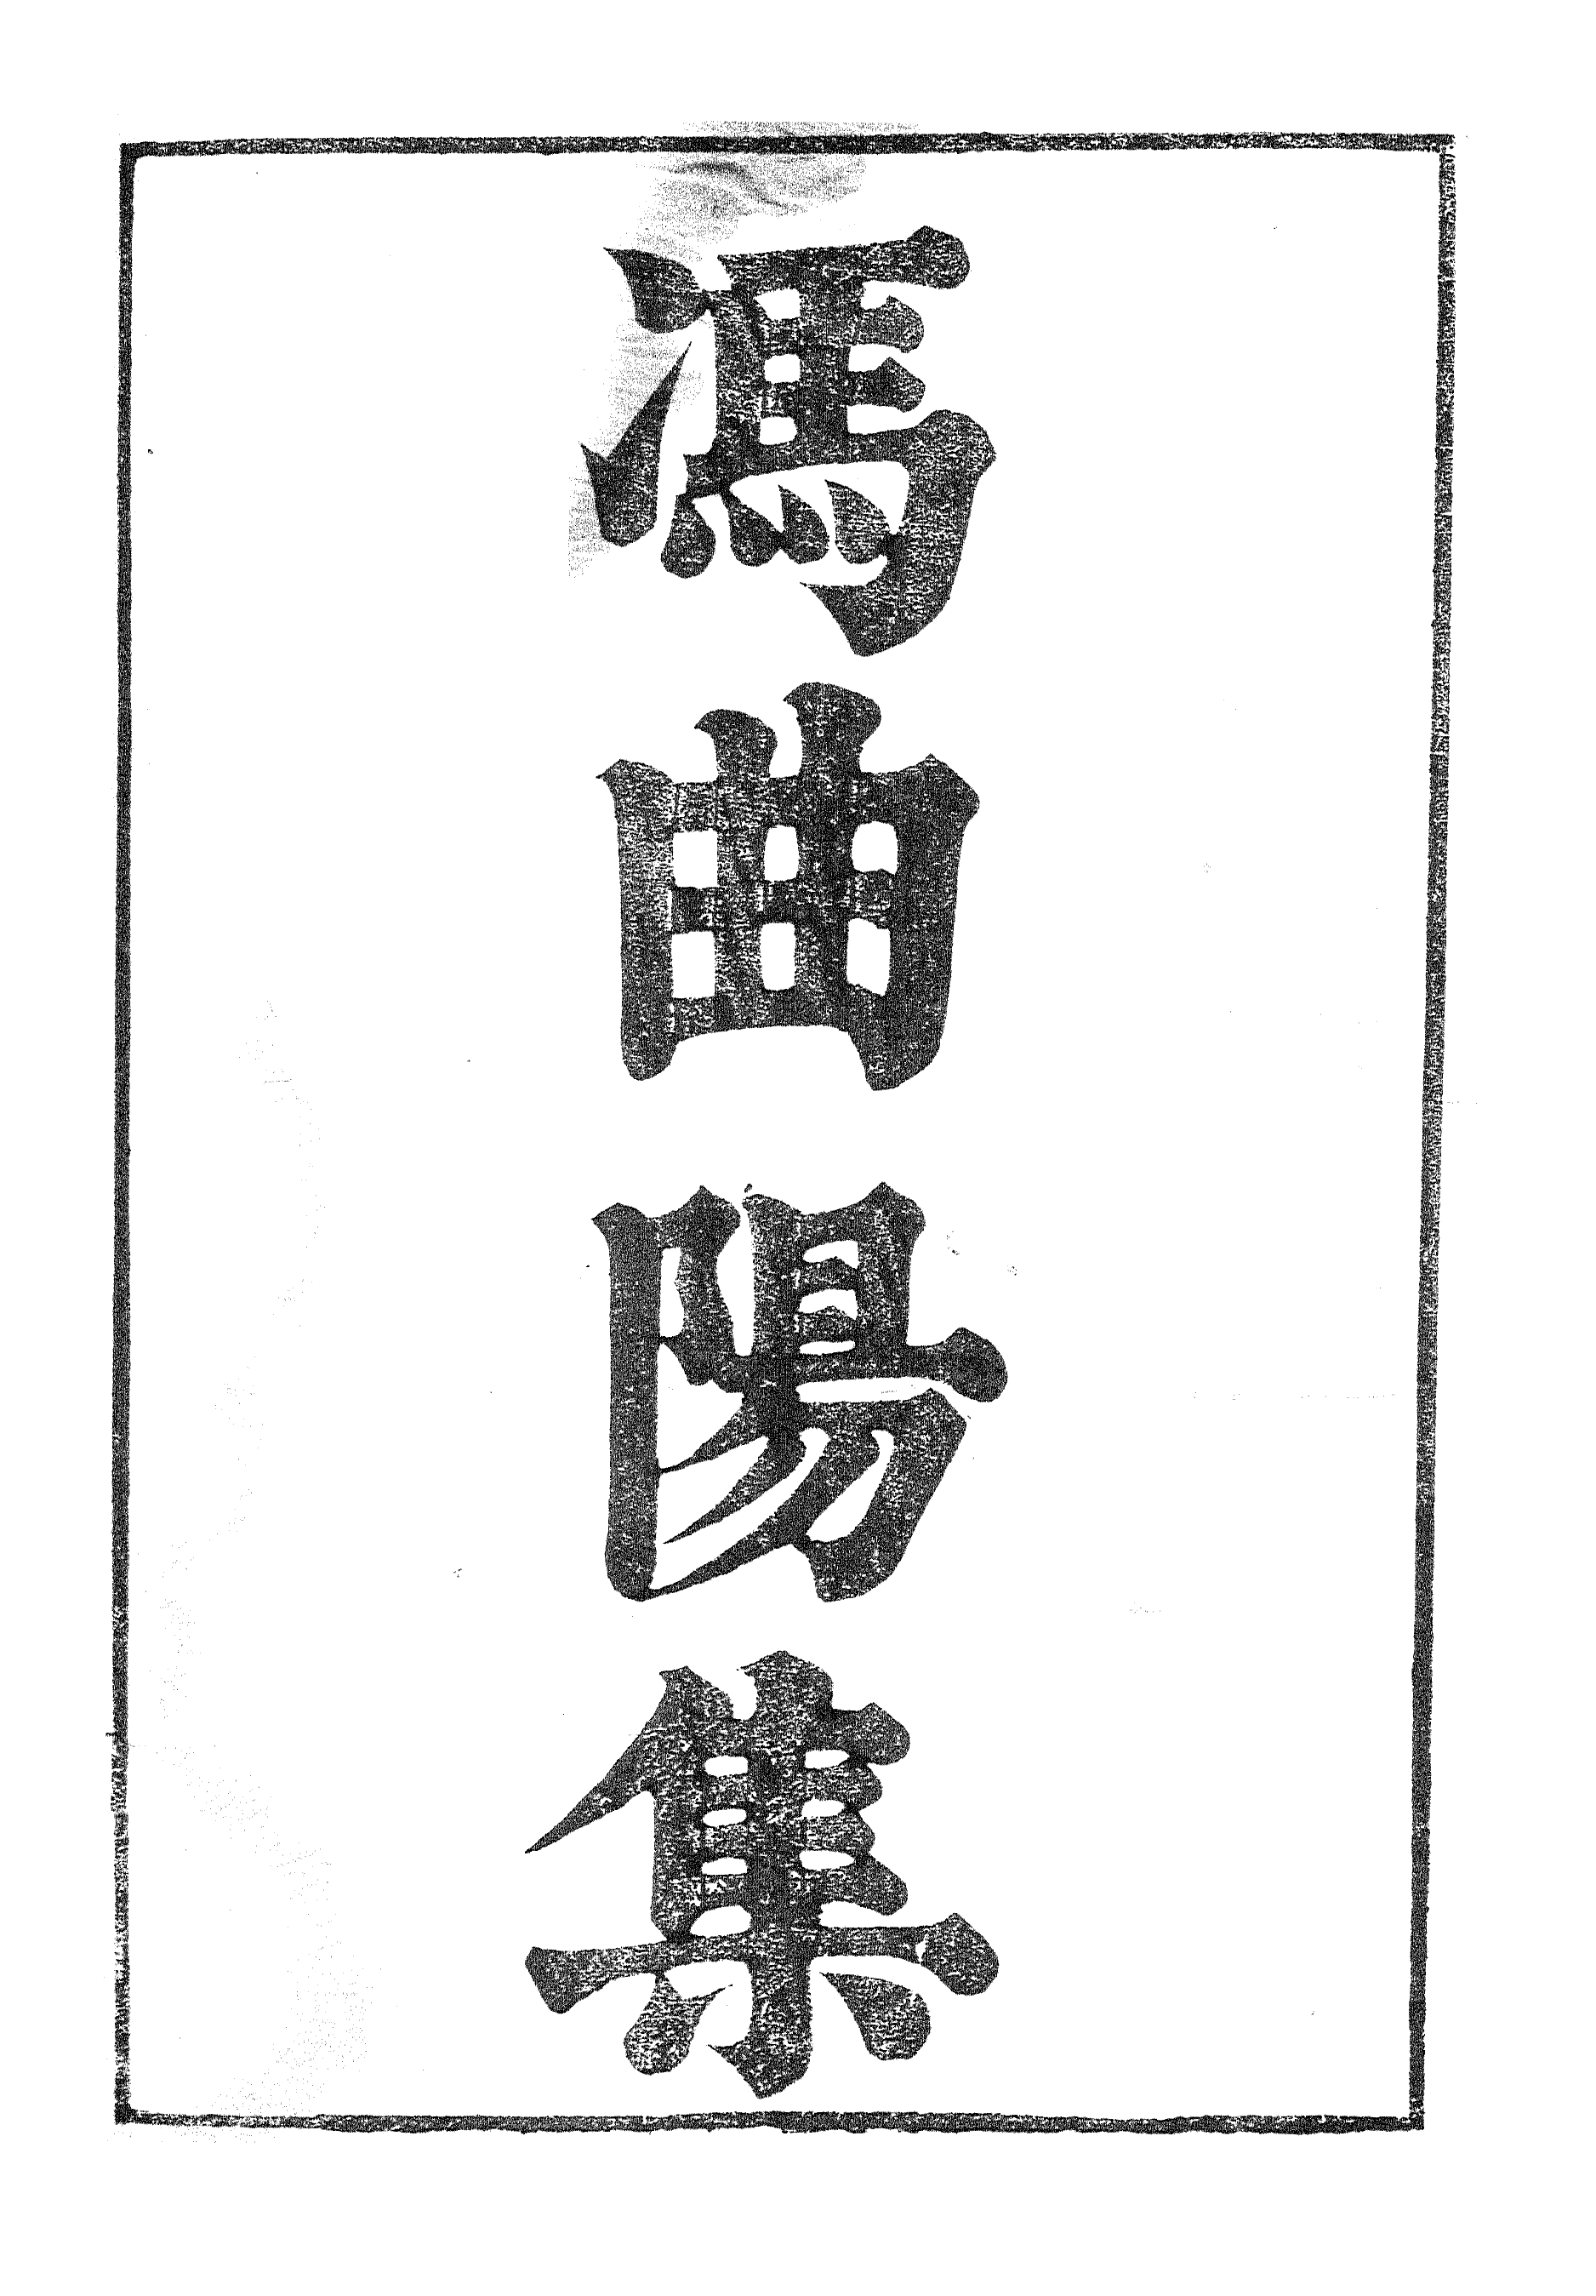 馮曲陽集